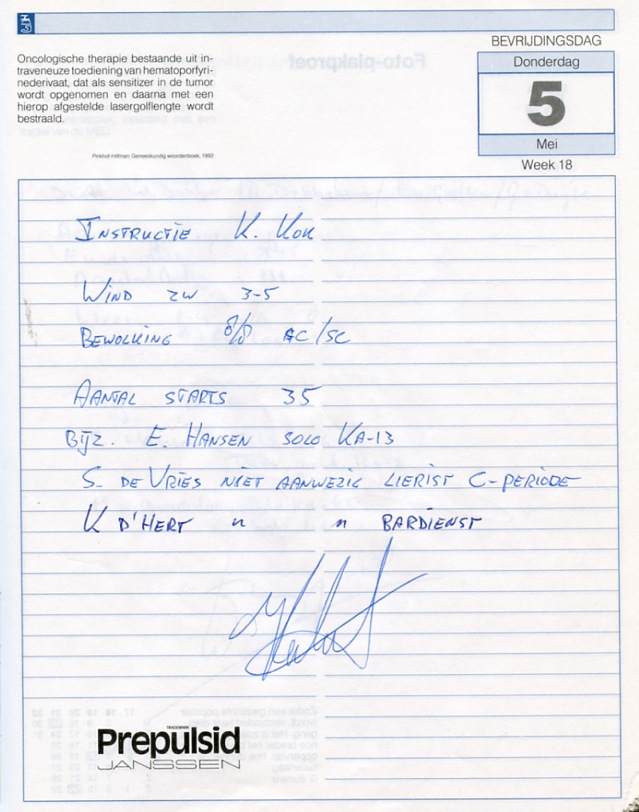 Oncologische therapie bestaande uit in-
traveneuze toediening van hematoporfyri-
nederivaat, dat als sensitizer in de tumor
wordt opgenomen en daarna met een
hierop afgestelde lasergolflengte wordt
bestraald.
Pinkhof-Hilfman: Geneeskundig woordenboek, 1992
BEVRIJDINGSDAG
Donderdag
5
Mei
Week 18
INSTRUCTIE K. KOK
WIND ZW 3-5
BEWOLKING 8/8 AC/SC
AANTAL STARTS 35
BIJZ. E. HANSEN SOLO KA-13
S. DE VRIES NIET AANWEZIG LIERIST C-PERIODE
K D'HERT " " BARDIENST
TRADEMARK
Prepulsid
JANSSEN